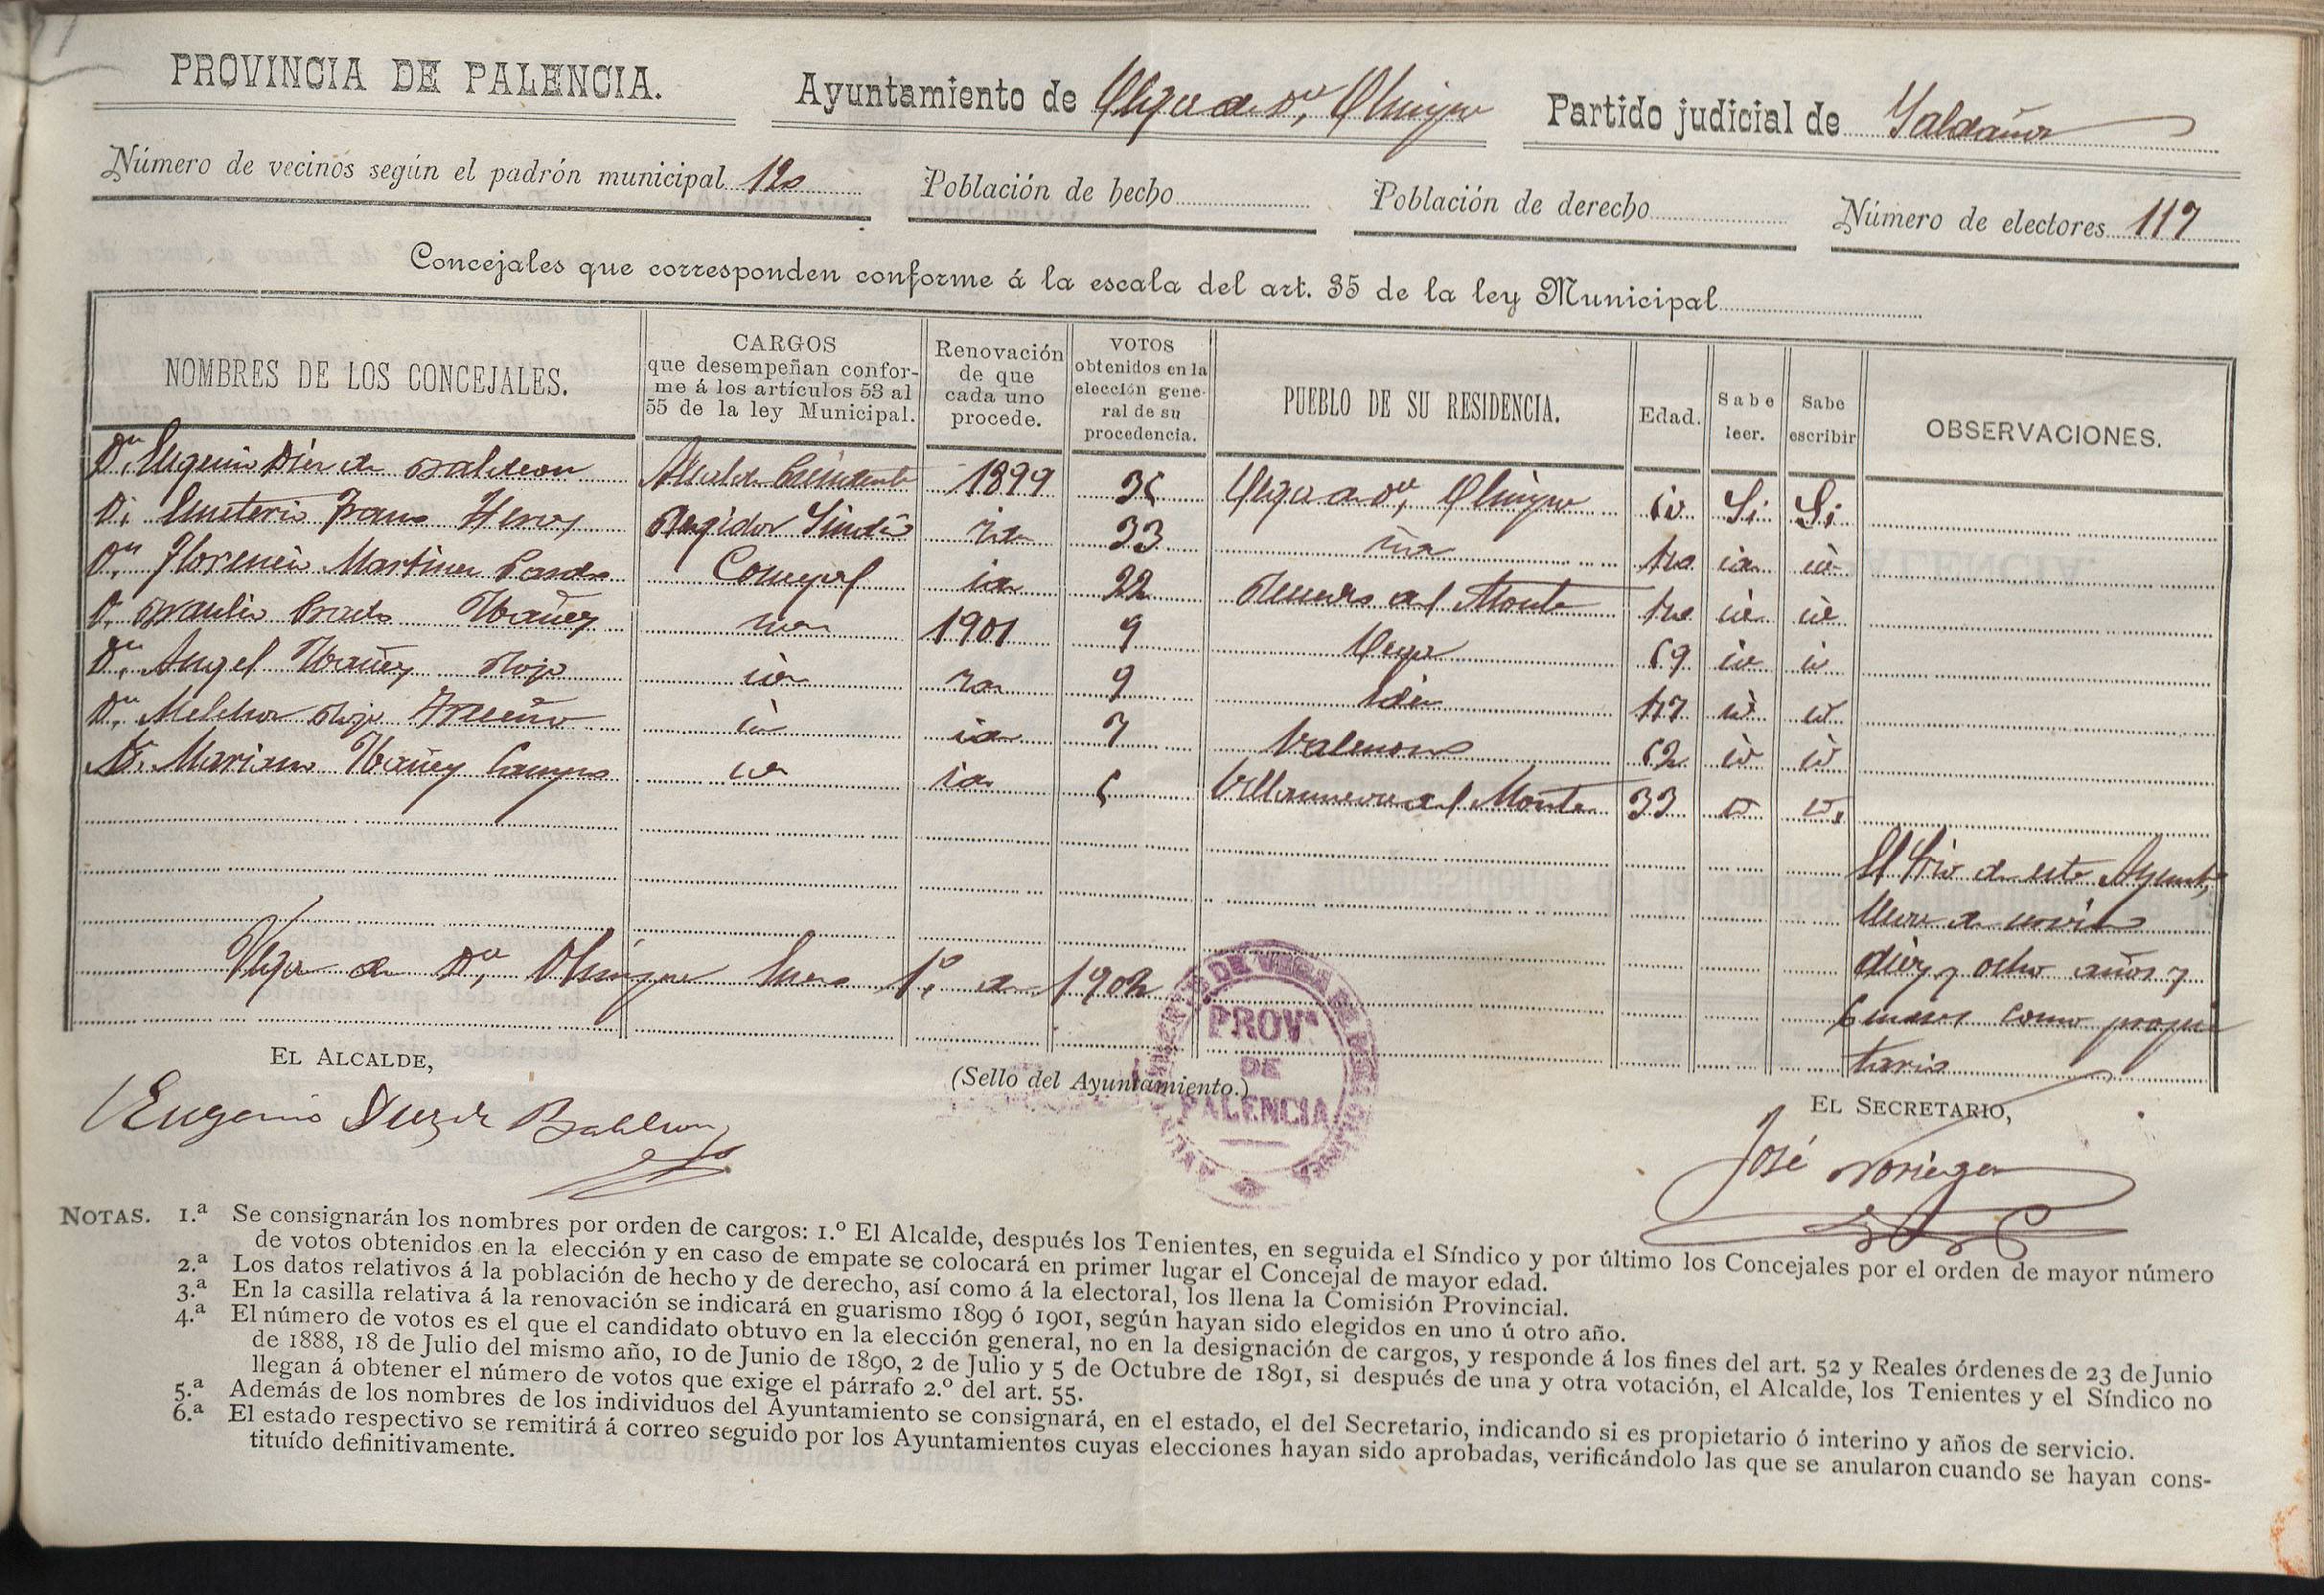 PROVINCIA DE PALENCIA. Ayuntamiento de Vega de Dª Olimpa Partido judicial de Saldaña
Número de vecinos según el padrón municipal 120 Población de hecho Población de derecho Número de electores 117
Concejales que corresponden conforme á la escala del art. 35 de la ley Municipal
NOMBRES DE LOS CONCEJALES.
CARGOS
que desempeñan confor-
me á los artículos 53 al
55 de la ley Municipal.
Renovación
de que
cada uno
procede.
VOTOS
obtenidos en la
elección gene-
ral de su
procedencia.
PUEBLO DE SU RESIDENCIA.
Edad.
Sabe
leer.
Sabe
escribir
OBSERVACIONES.
Dn. Eugenio Diez de Baldeon Alcalde Presidente 1899 Vega de Dª, Olimpa Si Si
D. Emeterio Franco Regidor Sindico 33
Dn. Florencio Martinez Pardo Concejal 22 Renedo del Monte
D. Braulio Prado Ibañez 1901 9 Vega
Dn. Angel Ibañez Rojo 9
Dn. Melchor Rojo 7 Valenoso
D. Mariano Ibañez Campo Villanueva del Monte 33
El Srio de este Ayunto,
lleva de servicio
diez y ocho años y
6 meses como propie
tario
Vega de Dª, Olimpa Enero 1º. de 1902
EL ALCALDE,
Eugenio Diez de Baldeon
(Sello del Ayuntamiento.)
PROVª
DE
PALENCIA
EL SECRETARIO,
José Noriega
NOTAS. 1.ª Se consignarán los nombres por orden de cargos: 1.º El Alcalde, después los Tenientes, en seguida el Síndico y por último los Concejales por el orden de mayor número
de votos obtenidos en la elección y en caso de empate se colocará en primer lugar el Concejal de mayor edad.
2.ª Los datos relativos á la población de hecho y de derecho, así como á la electoral, los llena la Comisión Provincial.
3.ª En la casilla relativa á la renovación se indicará en guarismo 1899 ó 1901, según hayan sido elegidos en uno ú otro año.
4.ª El número de votos es el que el candidato obtuvo en la elección general, no en la designación de cargos, y responde á los fines del art. 52 y Reales órdenes de 23 de Junio
de 1888, 18 de Julio del mismo año, 10 de Junio de 1890, 2 de Julio y 5 de Octubre de 1891, si después de una y otra votación, el Alcalde, los Tenientes y el Síndico no
llegan á obtener el número de votos que exige el párrafo 2.º del art. 55.
5.ª Además de los nombres de los individuos del Ayuntamiento se consignará, en el estado, el del Secretario, indicando si es propietario ó interino y años de servicio.
6.ª El estado respectivo se remitirá á correo seguido por los Ayuntamientos cuyas elecciones hayan sido aprobadas, verificándolo las que se anularon cuando se hayan cons-
tituído definitivamente.